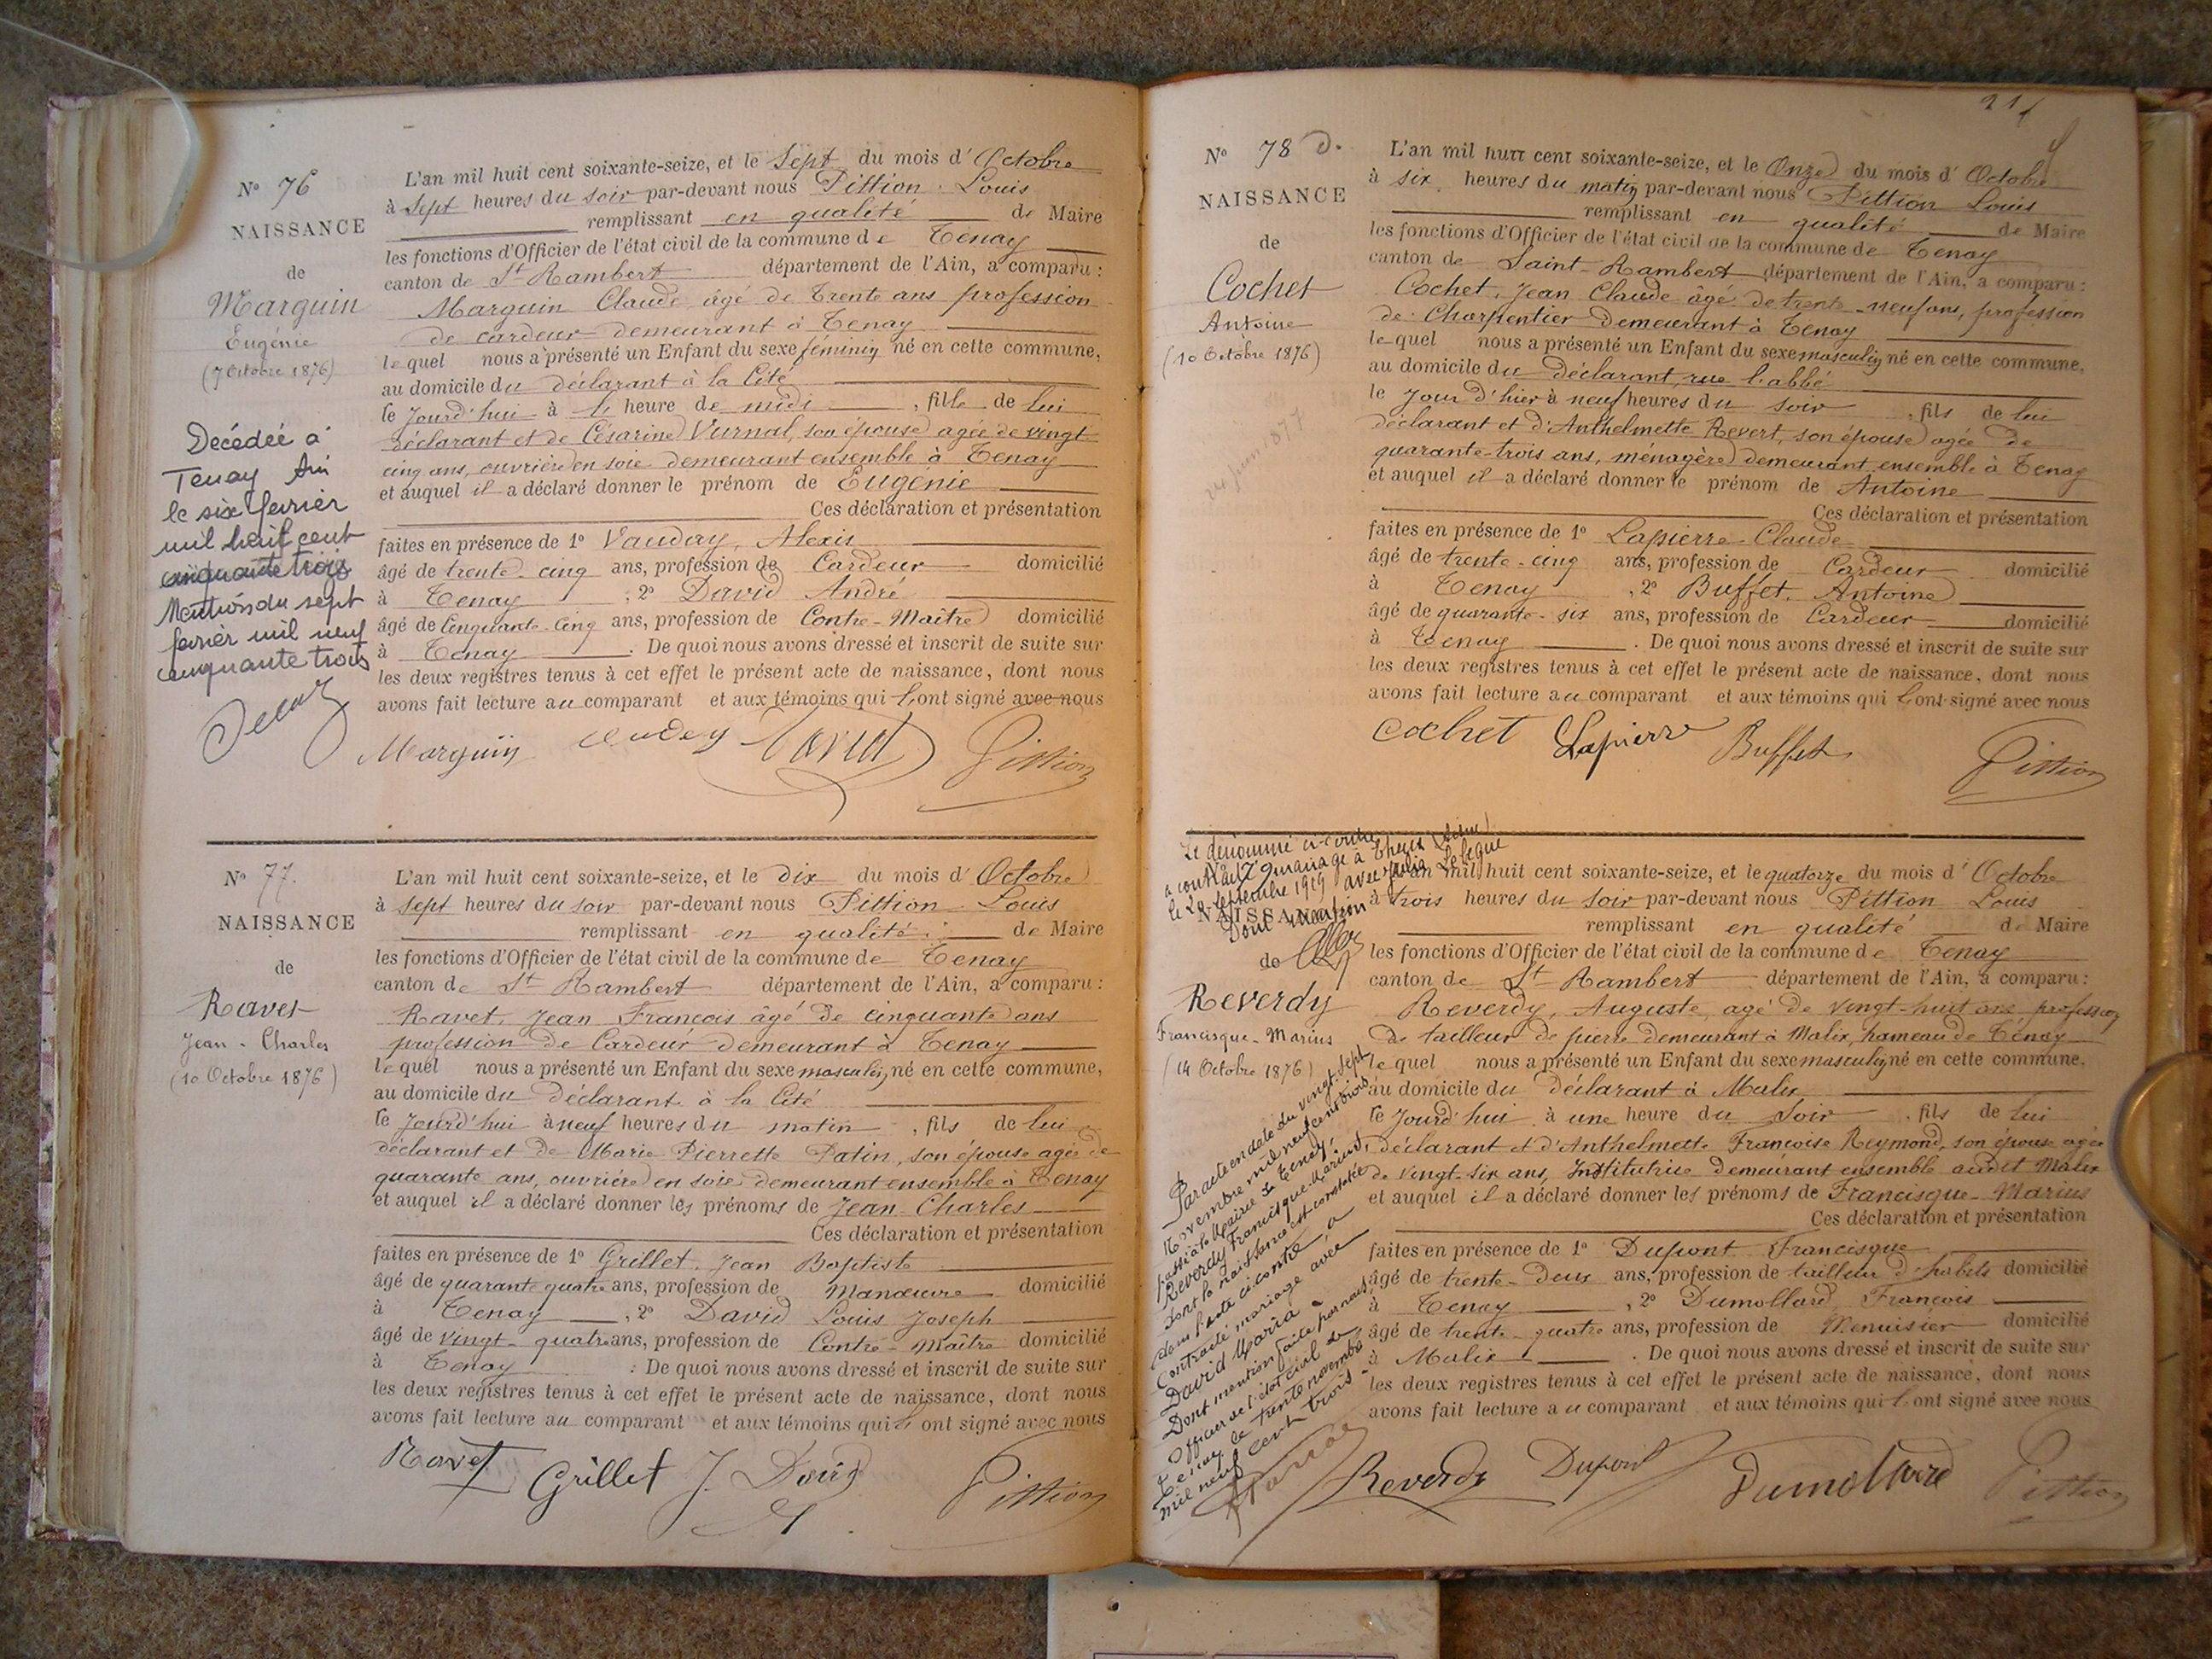 N° 76
NAISSANCE
de
Marguin
Eugénie
(7 Octobre 1876)
Decédée à
Tenay Ain
le six fevrier
mil huit cent
cinquante trois
Mention du sept
fevrier mil neuf
cinquante trois
L'an mil huit cent soixante-seize, et le Sept du mois d'Octobre
à Sept heures du soir par-devant nous Pittion Louis
remplissant en qualité de Maire
les fonctions d'Officier de l'état civil de la commune de Tenay
canton de St Rambert département de l'Ain, a comparu :
Marguin Claude âgé de trente ans profession
de cardeur demeurant à Tenay
lequel nous a présenté un Enfant du sexe féminin né en cette commune,
au domicile du déclarant à la Cité
le Jourd'hui à heure de midi , fille de lui
déclarant et de Césarine Vurnal, son épouse agée de vingt
cinq ans, ouvrière en soie demeurant ensemble à Tenay
et auquel il a déclaré donner le prénom de Eugénie
Ces déclaration et présentation
faites en présence de 1° Vauday, Alexis
âgé de trente-cinq ans, profession de Cardeur domicilié
à Tenay , 2° David André
âgé de Cinquante-Cinq ans, profession de Contre-Maître domicilié
à Tenay . De quoi nous avons dressé et inscrit de suite sur
les deux registres tenus à cet effet le présent acte de naissance, dont nous
avons fait lecture au comparant et aux témoins qui l'ont signé avec nous
Marguin David Pittion
N° 77.
NAISSANCE
de
Ravet
Jean-Charles
(10 Octobre 1876)
L'an mil huit cent soixante-seize, et le dix du mois d'Octobre
à Sept heures du soir par-devant nous Pittion Louis
remplissant en qualité de Maire
les fonctions d'Officier de l'état civil de la commune de Tenay
canton de St Rambert département de l'Ain, a comparu :
Ravet, Jean François âgé de cinquante ans
profession de Cardeur demeurant à Tenay
lequel nous a présenté un Enfant du sexe masculin né en cette commune,
au domicile du Déclarant à la Cité
le Jourd'hui à neuf heures du matin , fils de lui
déclarant et de Marie Pierrette Patin, son épouse agée de
quarante ans, ouvrière en soie demeurant ensemble à Tenay
et auquel il a déclaré donner les prénoms de Jean-Charles
Ces déclaration et présentation
faites en présence de 1° Grillet, Jean Baptiste
âgé de quarante quatre ans, profession de Manœuvre domicilié
à Tenay , 2° David Louis Joseph
âgé de vingt-quatre ans, profession de Contre-Maître domicilié
à Tenay : De quoi nous avons dressé et inscrit de suite sur
les deux registres tenus à cet effet le présent acte de naissance, dont nous
avons fait lecture au comparant et aux témoins qui l'ont signé avec nous
Ravet Grillet J. David Pittion
N° 78 D.
NAISSANCE
de
Cochet
Antoine
(10 Octobre 1876)
L'an mil huit cent soixante-seize, et le Onze du mois d'Octobre
à six heures du matin par-devant nous Pittion Louis
remplissant en qualité de Maire
les fonctions d'Officier de l'état civil de la commune de Tenay
canton de Saint-Rambert département de l'Ain, a comparu :
Cochet, Jean Claude âgé de trente-neuf ans, profession
de Charpentier Demeurant à Tenay
lequel nous a présenté un Enfant du sexe masculin né en cette commune,
au domicile du Déclarant, rue l'abbé
le Jour d'hier à neuf heures du soir , fils de lui
déclarant et d'Anthelmette Revert, son épouse agée de
quarante-trois ans, ménagère demeurant ensemble à Tenay
et auquel il a déclaré donner le prénom de Antoine
Ces déclaration et présentation
faites en présence de 1° Lapierre Claude
âgé de trente-cinq ans, profession de Cardeur domicilié
à Tenay , 2° Buffet, Antoine
âgé de quarante-six ans, profession de Cardeur domicilié
à Tenay . De quoi nous avons dressé et inscrit de suite sur
les deux registres tenus à cet effet le présent acte de naissance, dont nous
avons fait lecture au comparant et aux témoins qui l'ont signé avec nous
Cochet Lapierre Buffet Pittion
Le dénommé ci-contre
a contracté mariage à
le 20 Septembre 1919 avec Julia
Dont mention
NAISSANCE
de
Reverdy
Francisque-Marius
(14 Octobre 1876)
Par acte en date du vingt-sept
Novembre mil neuf cent trois
passé à la Mairie de Tenay,
Reverdy Francisque-Marius,
dont la naissance est constatée
dans l'acte ci-contre, a
contracté mariage avec
David Maria
Dont mention faite par nous,
Officier de l'état civil de
Tenay, le trente novembre
mil neuf cent trois
L'an mil huit cent soixante-seize, et le quatorze du mois d'Octobre
à trois heures du soir par-devant nous Pittion Louis
remplissant en qualité de Maire
les fonctions d'Officier de l'état civil de la commune de Tenay
canton de St Rambert département de l'Ain, a comparu :
Reverdy, Auguste, agé de vingt-huit ans, profession
de tailleur de pierre demeurant à Malix, hameau de Tenay
lequel nous a présenté un Enfant du sexe masculin né en cette commune,
au domicile du Déclarant à Malix
le Jourd'hui à une heure du Soir , fils de lui
déclarant et d'Anthelmette Françoise Reymond, son épouse agée
de vingt-six ans, Institutrice demeurant ensemble audit Malix
et auquel il a déclaré donner les prénoms de Francisque-Marius
Ces déclaration et présentation
faites en présence de 1° Dupont Francisque
âgé de trente-Deux ans, profession de tailleur d'habits domicilié
à Tenay , 2° Dumollard, François
âgé de trente-quatre ans, profession de Menuisier domicilié
à Malix . De quoi nous avons dressé et inscrit de suite sur
les deux registres tenus à cet effet le présent acte de naissance, dont nous
avons fait lecture au comparant et aux témoins qui l'ont signé avec nous
Reverdy Dupont Dumollard Pittion